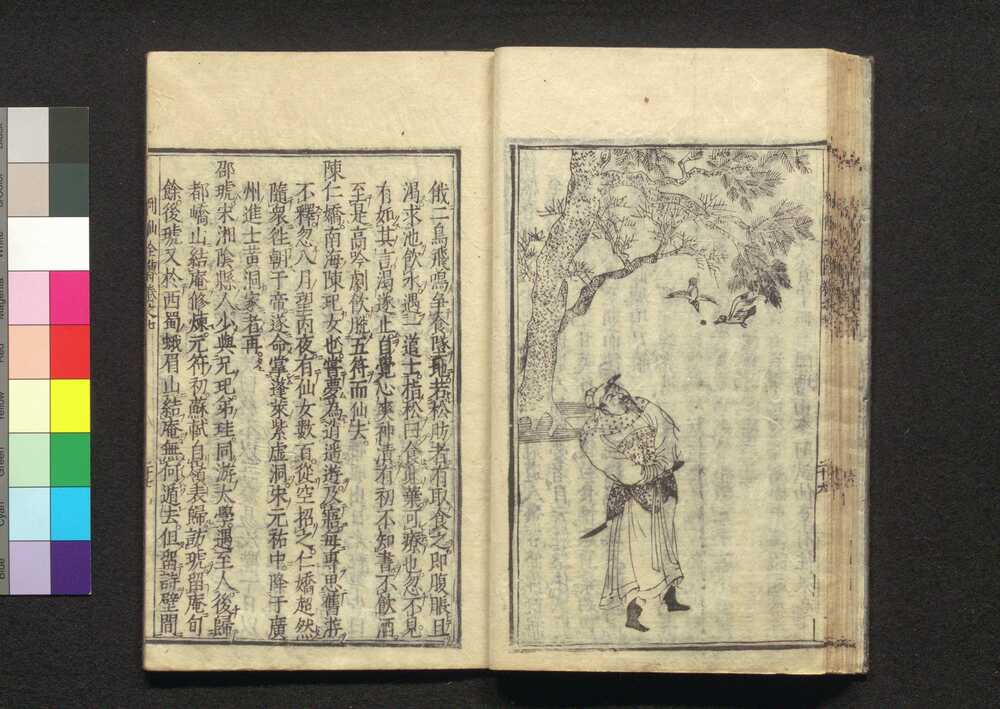 俄二鳥飛鳴争食墜地若松肪者有取食之即腹脹且
渇求池飲水遇一道士指松曰食此葉可療也忽不見
有如其言渇遂止自覚心爽神清有初不知書不飲酒
至是高吟劇飲
五符而仙去
陳仁嬌南海陳玘女也嘗夢為逍遥遊及寤毎専思舊遊
不釋忽八月望丙夜有仙女數百從空招之仁嬌超然
隨衆往朝于帝遂命掌蓬莱紫虚洞宋元祐中降于廣
州進士黄洞家者再
邵琥宋湘陰縣人少與兄玘弟珪同游太學遇至人後歸
都嶠山結庵修煉元符初蘇軾自嶺表歸訪琥留庵旬
餘後琥又於西蜀蛾眉山結庵無何遁去但留詩壁間